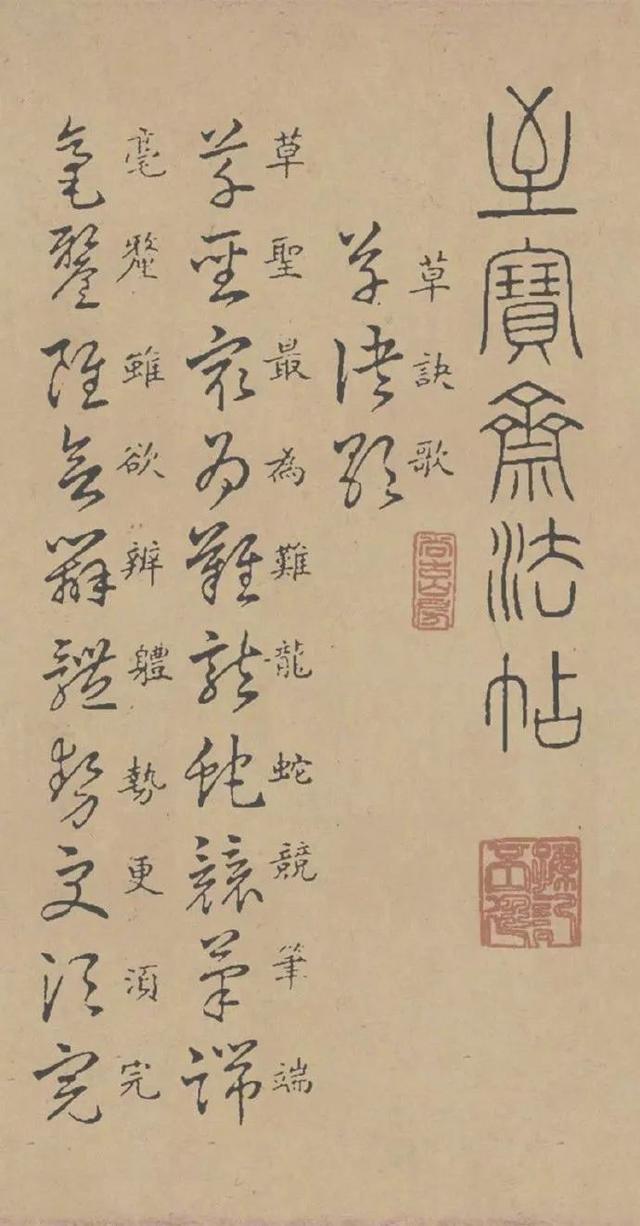 至寶齋法帖
草訣歌
草訣歌
草聖最為難龍蛇競筆端
草聖最為難龍蛇競筆端
毫釐雖欲辨體勢更湏完
毫釐雖欲辨體勢更須完